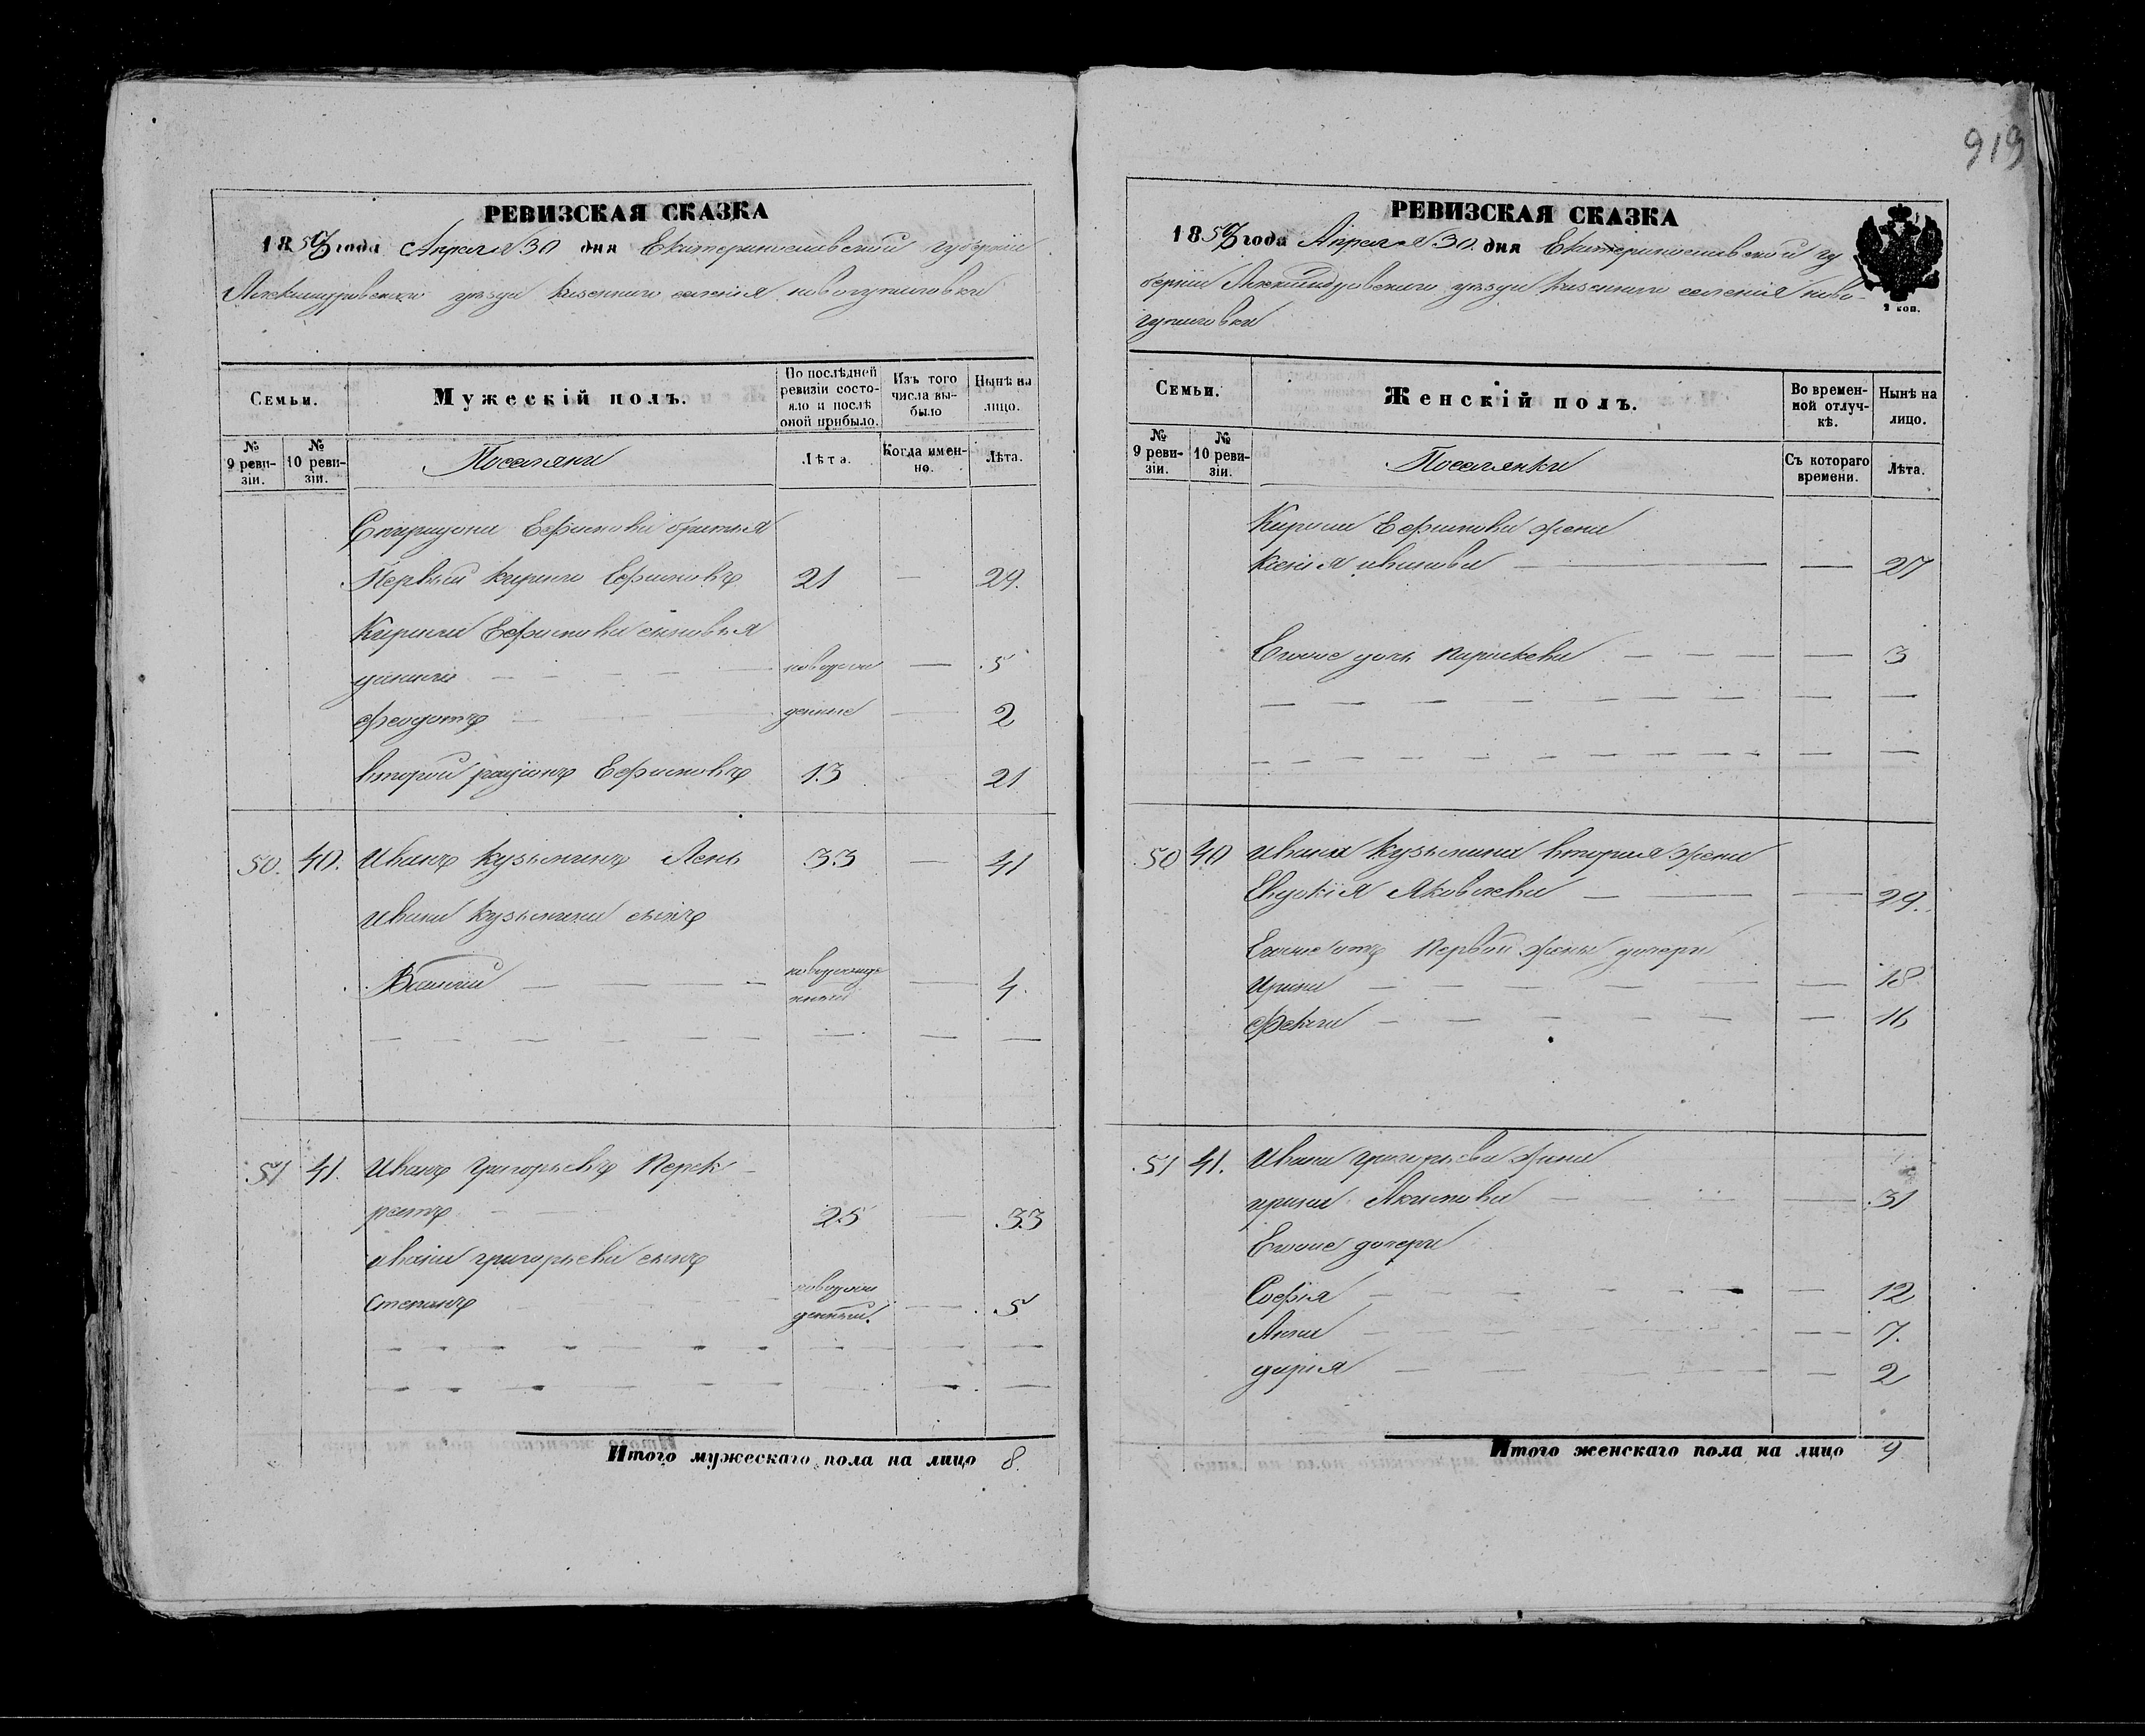 919
РЕВИЗСКАЯ СКАЗКА
1858 года Апреля 30 дня Екатеринославской губернии
Александровского уезда казенного селения новогупаловки
Семьи.
Мужескій полъ.
По послѣдней ревизіи состояло и послѣ оной прибыло.
Изъ того числа выбыло
Нынѣ на лицо.
№ 9 ревизіи.
№ 10 ревизіи.
Поселяне
Лѣта.
Когда именно.
Лѣта.
Спиридона Ефимова братья
Первый кирило Ефимовъ 21 — 29.
Кирила Ефимова сыновья
данило — новорож — 5
феодотъ — денные — 2
второй родіонъ Ефимовъ 13 21
50. 40. Иванъ кузьминъ Лень 33 — 41
Ивана кузьмина сынъ
Василій — новорожде
нный — 4.
51 41. Иванъ григорьевъ Перек-
рестъ 25 — 33
ивана григорьева сынъ
Степанъ новорож
денный. — 5
Итого мужескаго пола на лицо 8.
РЕВИЗСКАЯ СКАЗКА
1858 года Апреля 30. дня Екатеринославской гу
берніи Александровского уезда казенного селенія ново-
гупаловки
2 коп.
Семьи.
Женскій полъ.
Во временной отлучкѣ.
Нынѣ на лицо.
№ 9 ревизіи.
№ 10 ревизіи.
Поселянки
Съ котораго времени.
Лѣта.
Кирила Ефимова жена
ксенія иванова — — 27
Егоже дочь парасковья — — 3
50 40 Ивана кузьмина вторая жена
Евдокія Яковлева — — 29.
Егоже отъ Первой жены дочери
Ирина — — 18
фекла — — 16
51 41. Ивана григорьева жена
ирина Акимова — — 31
Егоже дочери
Софія — — 12
Анна — — 7.
дарія — — 2
Итого женскаго пола на лицо 9